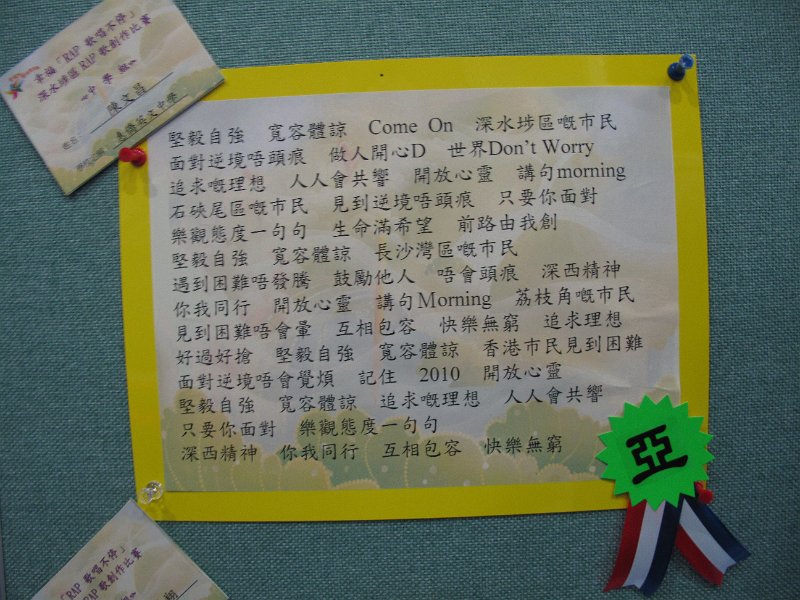 幸福「RAP 歌唱不停」
深水埗區RAP歌創作比賽
《中學組》
陳文昌
英文中學
堅毅自強 寬容體諒 Come On 深水埗區嘅市民
面對逆境唔頭痕 做人開心D 世界Don't Worry
追求嘅理想 人人會共響 開放心靈 講句morning
石硤尾區嘅市民 見到逆境唔頭痕 只要你面對
樂觀態度一句句 生命滿希望 前路由我創
堅毅自強 寬容體諒 長沙灣區嘅市民
遇到困難唔發騰 鼓勵他人 唔會頭痕 深西精神
你我同行 開放心靈 講句Morning 荔枝角嘅市民
見到困難唔會暈 互相包容 快樂無窮 追求理想
好過好搶 堅毅自強 寬容體諒 香港市民見到困難
面對逆境唔會覺煩 記住 2010 開放心靈
堅毅自強 寬容體諒 追求嘅理想 人人會共響
只要你面對 樂觀態度一句句
深西精神 你我同行 互相包容 快樂無窮
亞
「RAP 歌唱不停」
RAP歌創作比賽